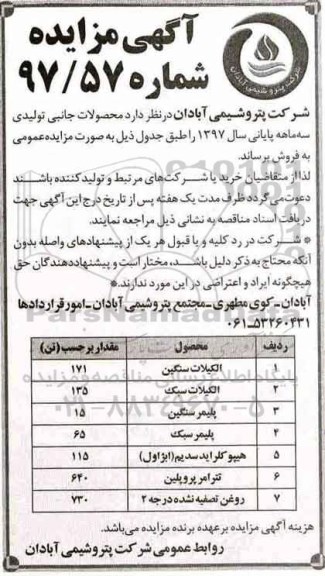 آگهی مزایده
شماره ۹۷/۵۷
شرکت پتروشیمی آبادان
شرکت پتروشیمی آبادان درنظر دارد محصولات جانبی تولیدی
سه‌ماهه پایانی سال ۱۳۹۷ را طبق جدول ذیل به صورت مزایده‌عمومی
به فروش برساند.
لذا از متقاضیان خرید یا شرکت‌های مرتبط و تولیدکننده باشند
دعوت‌می‌گردد ظرف مدت یک هفته پس از تاریخ درج این آگهی جهت
دریافت اسناد مناقصه به نشانی ذیل مراجعه نمایند.
* شرکت در رد کلیه و یا قبول هر یک از پیشنهادهای واصله بدون
آنکه محتاج به ذکر دلیل باشد، مختار است و پیشنهاددهندگان حق
هیچگونه ایراد و اعتراضی در این مورد ندارند.*
آبادان-کوی مطهری-مجتمع پتروشیمی آبادان-امور قراردادها
۰۶۱-۵۳۲۶۰۴۳۱
ردیف محصول مقدار برحسب (تن)
۱ الکیلات سنگین ۱۷۱
۲ الکیلات سبک ۱۳۵
۳ پلیمر سنگین ۱۵
۴ پلیمر سبک ۶۵
۵ هیپوکلراید سدیم (ابژاول) ۱۱۵
۶ تترامر پروپلین ۶۴۰
۷ روغن تصفیه نشده درجه ۲ ۷۳۰
هزینه آگهی مزایده برعهده برنده مزایده می‌باشد.
روابط عمومی شرکت پتروشیمی آبادان
ParsNamadData
پایگاه اطلاع رسانی مناقصه و مزایده
۰۲۱-۸۸۳۴۹۶۷۰-۵